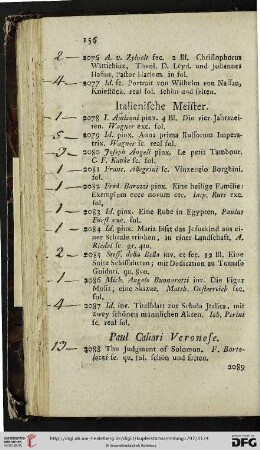 156
2 — 2076 A. v. Zylvelt fec. 2 Bl. Christophorus
Wittichius, Theol. D. Leyd. und Johannes
Hasius, Pastor Harlem. in fol.
4 — 2077 Id. sc. Portrait von Wilhelm von Nassau,
Kniestück. real fol. schön und selten.
Italienische Meister.
1 — 2078 I. Amiconi pinx. 4 Bl. Die vier Jahrszei-
ten. Wagner exc. fol.
5 — 2079 Id. pinx. Anna prima Russorum Impera-
trix. Wagner sc. real fol.
2 — 2080 Joseph Angeli pinx. Le petit Tambour.
C. F. sc. fol.
1 — 2081 Franc. Allegrini sc. Vinzenzio Borghini.
fol.
1 — 2082 Fred. Barozzi pinx. Eine heilige Familie:
Exemplum ecce novum etc. Imp. exc.
fol.
1 — 2083 Id. pinx. Eine Ruhe in Egypten, Paulus
Fürst exc. fol.
1 — 2084 Id. pinx. Maria läst das Jesuskind aus ei-
ner Schaale trinken, in einer Landschaft, A.
Riedel sc. gr. 4to.
2 — 2085 Steff. della Bella inv. et fec. 19 Bl. Eine
Suite Schiffahrten; mit Dedication an Tomaso
Guidoti. qu. 8vo.
1 — 2086 Mich. Angelo Buonarotti inv. Die Figur
Mosis, eine Skizze, Matth. Oesterreich fec.
fol.
4 — 2087 Id. inv. Titelblatt zur Schola Italica, mit
zwey schönen männlichen Akten. Ioh. Perini
sc. real fol.
Paul Caliari Veronese.
13 — 2088 The Judgment of Solomon, F. Barto-
lozzi sc. qu. fol. schön und selten.
2089
http://digi.ub.uni-heidelberg.de/diglit/
© Universitätsbibliothek Heidelberg
DFG